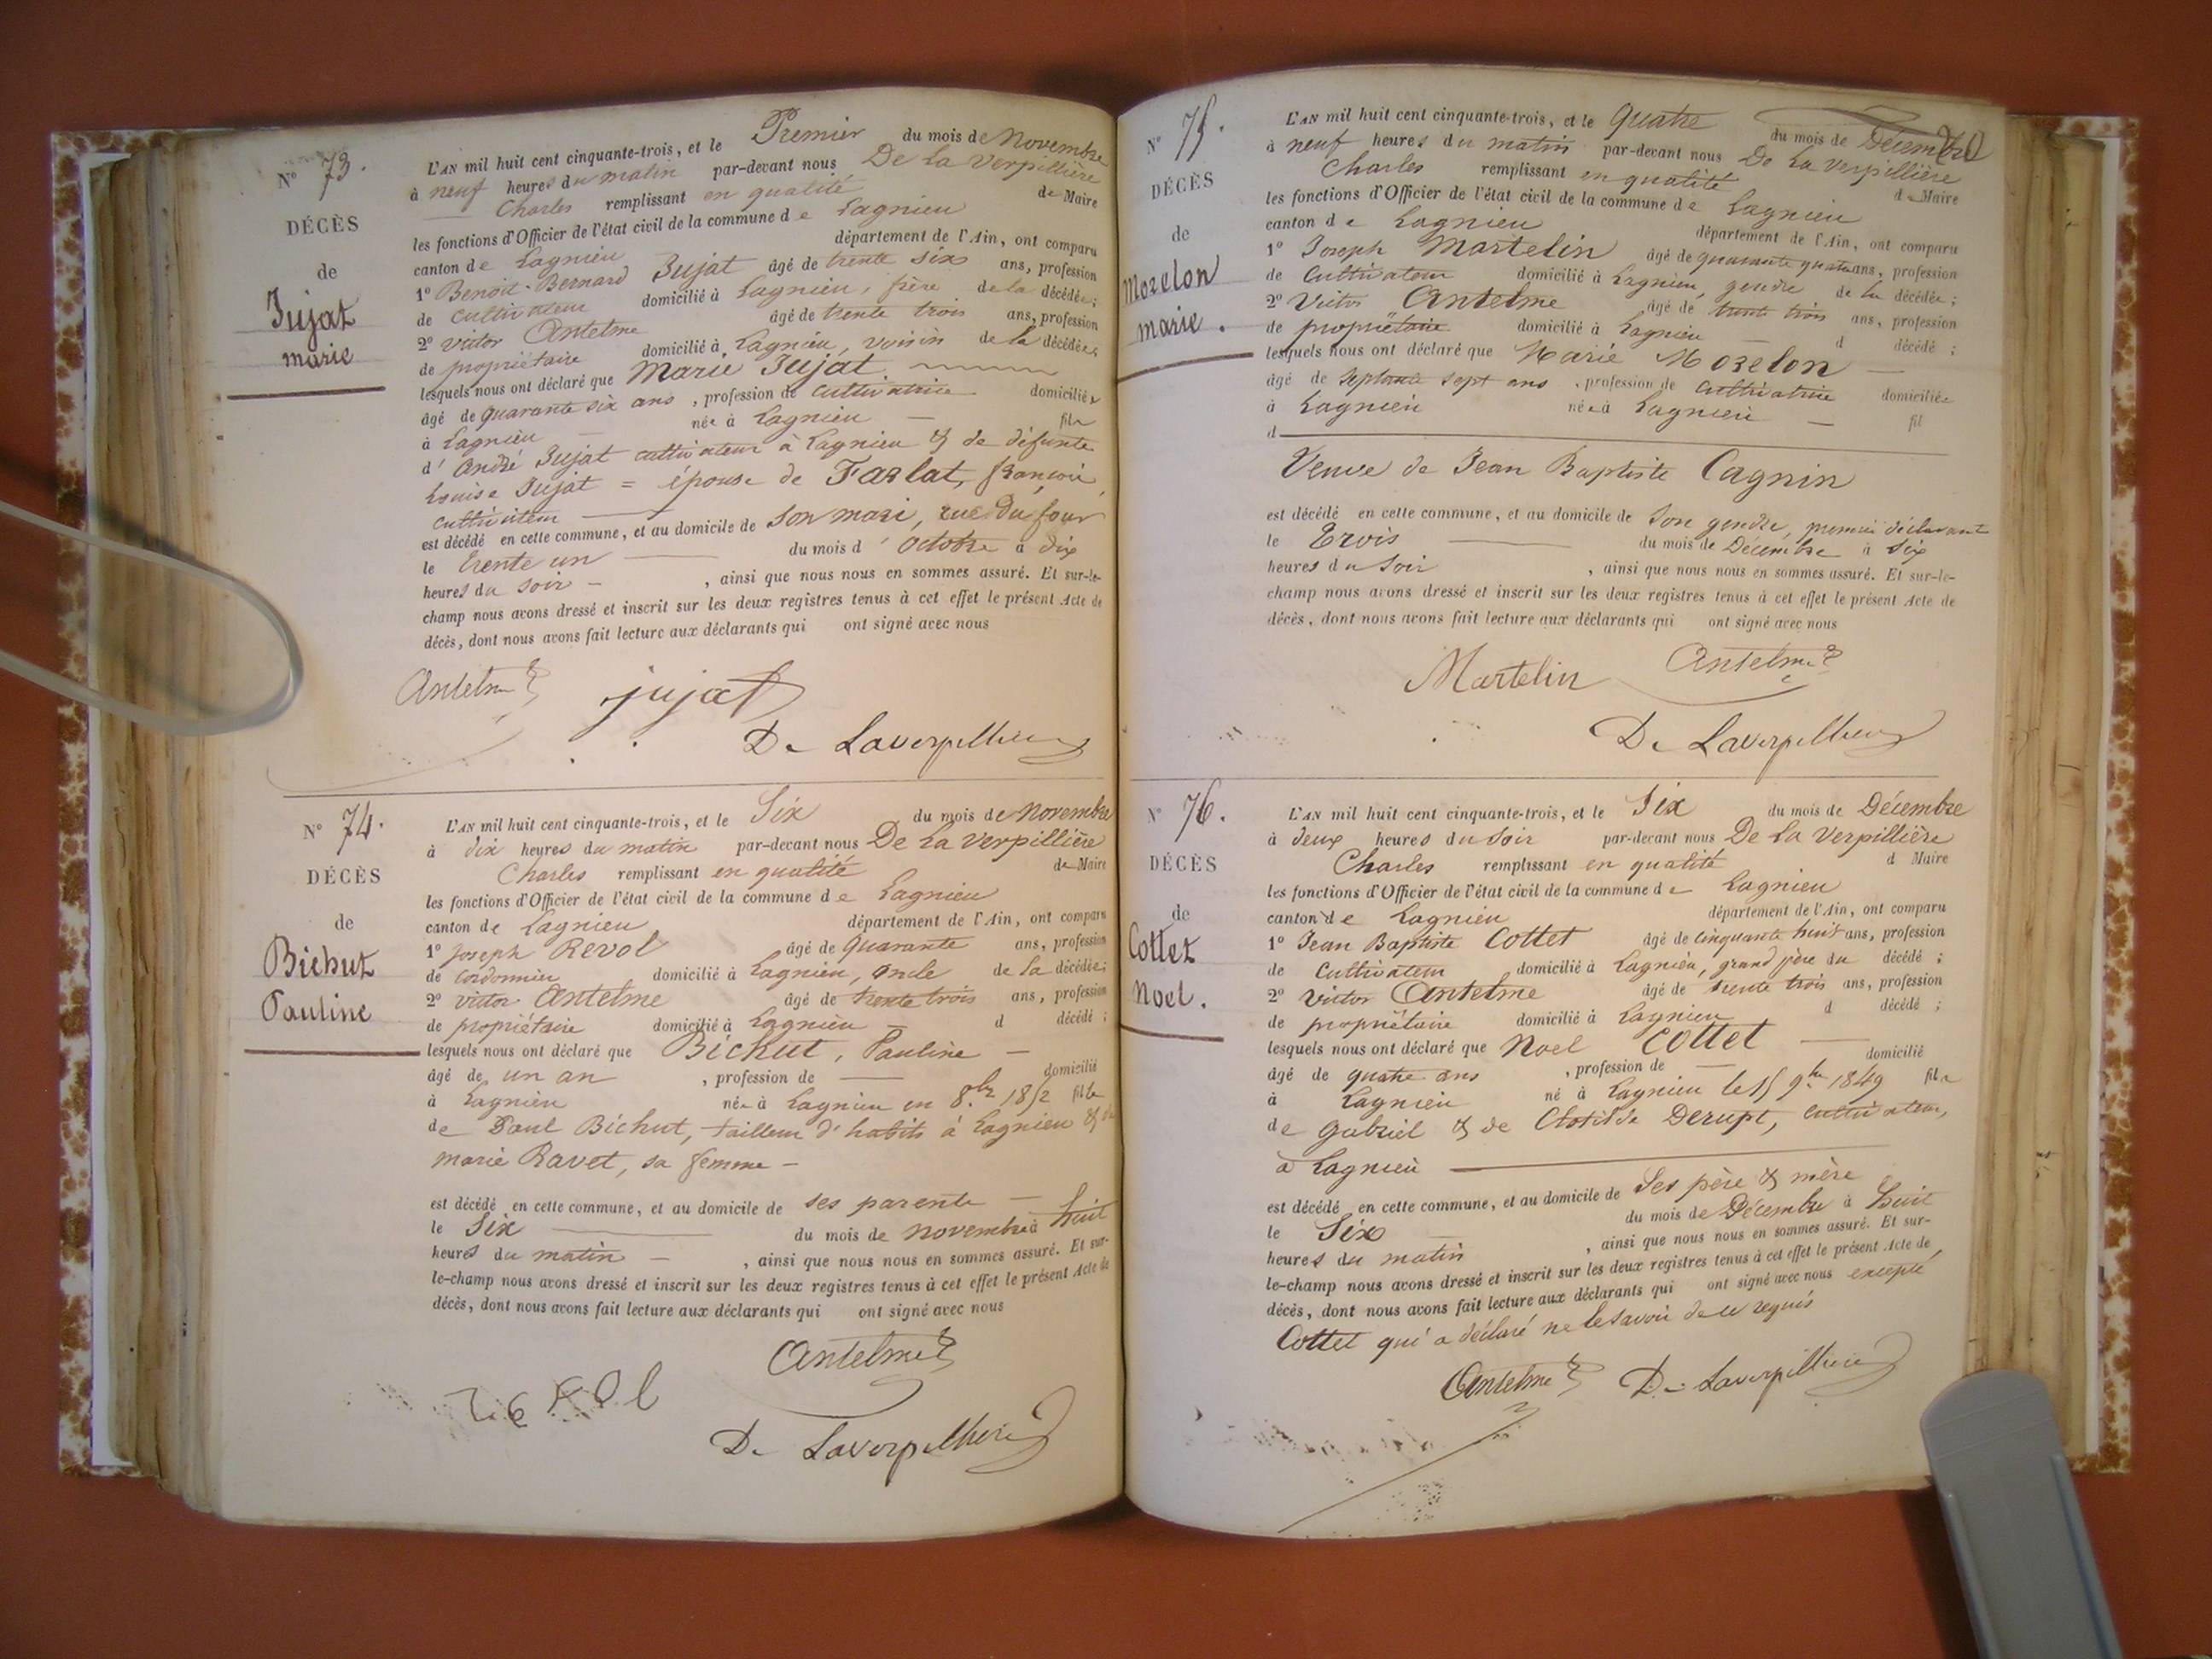 N° 73.
DÉCÈS
de
Jujat
marie
L'AN mil huit cent cinquante-trois, et le Premier du mois de Novembre
à neuf heures du matin par-devant nous De La Verpillière
Charles remplissant en qualité de Maire
les fonctions d'Officier de l'état civil de la commune de Lagnieu
canton de Lagnieu département de l'Ain, ont comparu
1° Benoit Bernard Jujat âgé de trente six ans, profession
de cultivateur domicilié à Lagnieu, frère de la décédée;
2° victor Antelme âgé de trente trois ans, profession
de propriétaire domicilié à Lagnieu, voisin de la décédée,
lesquels nous ont déclaré que Marie Jujat
âgé de quarante six ans, profession de cultivatrice domiciliée
à Lagnieu née à Lagnieu fille
d'André Jujat cultivateur à Lagnieu & de défunte
Louise Jujat = épouse de Farlat, françois,
cultivateur
est décédé en cette commune, et au domicile de son mari, rue du four
le trente un du mois d'octobre à dix
heures du soir, ainsi que nous nous en sommes assuré. Et sur-le-
champ nous avons dressé et inscrit sur les deux registres tenus à cet effet le présent Acte de
décès, dont nous avons fait lecture aux déclarants qui ont signé avec nous
Antelme jujat
De Laverpilliere
N° 74.
DÉCÈS
de
Bichut
Pauline
L'AN mil huit cent cinquante-trois, et le Six du mois de novembre
à dix heures du matin par-devant nous De La Verpillière
Charles remplissant en qualité de Maire
les fonctions d'Officier de l'état civil de la commune de Lagnieu
canton de Lagnieu département de l'Ain, ont comparu
1° Joseph Revol âgé de quarante ans, profession
de cordonnier domicilié à Lagnieu, oncle de la décédée;
2° victor Antelme âgé de trente trois ans, profession
de propriétaire domicilié à Lagnieu d décédé;
lesquels nous ont déclaré que Bichut, Pauline
âgé de un an, profession de domicilié
à Lagnieu née à Lagnieu en 8bre 1852 fille
de Paul Bichut, tailleur d'habits à Lagnieu & de
marie Ravet, sa femme
est décédé en cette commune, et au domicile de ses parents
le Six du mois de novembre à huit
heures du matin, ainsi que nous nous en sommes assuré. Et sur-
le-champ nous avons dressé et inscrit sur les deux registres tenus à cet effet le présent Acte de
décès, dont nous avons fait lecture aux déclarants qui ont signé avec nous
Antelme
revol
De Laverpilliere
N° 75.
DÉCÈS
de
Morelon
marie.
L'AN mil huit cent cinquante-trois, et le quatre du mois de Décembre
à neuf heures du matin par-devant nous De La Verpillière
Charles remplissant en qualité de Maire
les fonctions d'Officier de l'état civil de la commune de Lagnieu
canton de Lagnieu département de l'Ain, ont comparu
1° Joseph Martelin âgé de quarante quatre ans, profession
de cultivateur domicilié à Lagnieu, gendre de la décédée;
2° Victor Antelme âgé de trente trois ans, profession
de propriétaire domicilié à Lagnieu d décédé;
lesquels nous ont déclaré que Marie Morelon
âgé de septante sept ans, profession de cultivatrice domiciliée
à Lagnieu née à Lagnieu fil
d
Veuve de Jean Baptiste Cagnin
est décédé en cette commune, et au domicile de son gendre, premier déclarant
le Trois du mois de Décembre à six
heures du soir, ainsi que nous nous en sommes assuré. Et sur-le-
champ nous avons dressé et inscrit sur les deux registres tenus à cet effet le présent Acte de
décès, dont nous avons fait lecture aux déclarants qui ont signé avec nous
Martelin Antelme
De Laverpilliere
N° 76.
DÉCÈS
de
Cottet
Noel.
L'AN mil huit cent cinquante-trois, et le Six du mois de Décembre
à deux heures du soir par-devant nous De La Verpillière
Charles remplissant en qualité d Maire
les fonctions d'Officier de l'état civil de la commune de Lagnieu
canton de Lagnieu département de l'Ain, ont comparu
1° Jean Baptiste Cottet âgé de cinquante huit ans, profession
de cultivateur domicilié à Lagnieu, grand père du décédé;
2° Victor Antelme âgé de trente trois ans, profession
de propriétaire domicilié à Lagnieu d décédé;
lesquels nous ont déclaré que Noel Cottet
âgé de quatre ans, profession de domicilié
à Lagnieu né à Lagnieu le 15 9bre 1849 fils
de gabriel & de Clotilde Derupt, cultivateur,
à Lagnieu
est décédé en cette commune, et au domicile de ses père & mère
le Six du mois de Décembre à huit
heures du matin, ainsi que nous nous en sommes assuré. Et sur-
le-champ nous avons dressé et inscrit sur les deux registres tenus à cet effet le présent Acte de
décès, dont nous avons fait lecture aux déclarants qui ont signé avec nous excepté
Cottet qui a déclaré ne le savoir de ce requis
Antelme De Laverpilliere